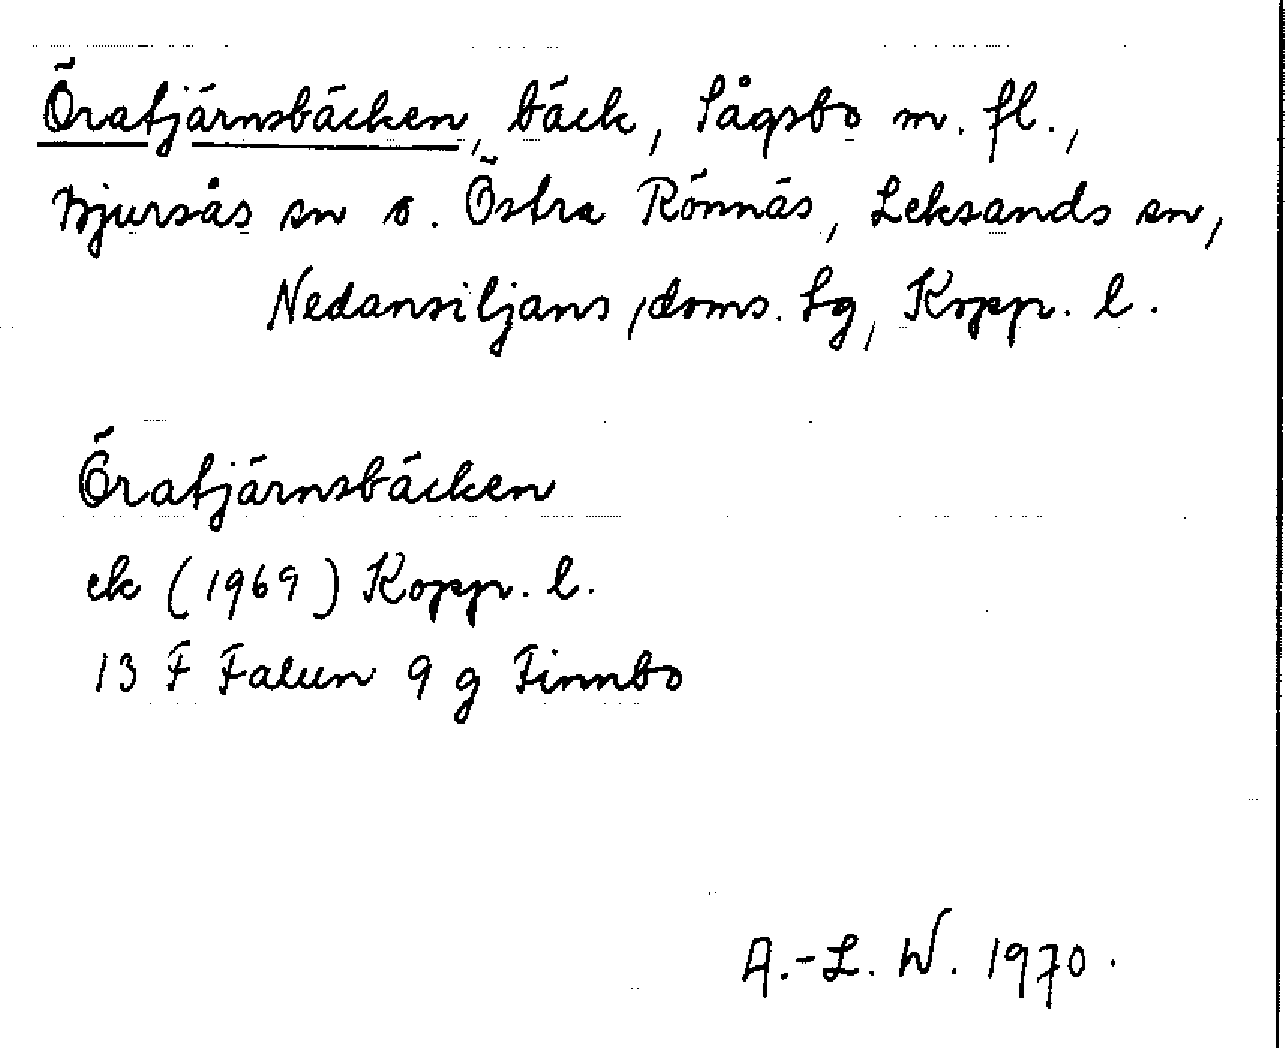 Öratjärnsbäcken, bäck, Sågsbo m. fl.,
Bjursås sn o. Östra Rönnäs, Leksands sn,
Nedansiljans doms. tg, Kopp. l.
Öratjärnsbäcken
ek (1969) Kopp. l.
13 F Falun 9 g Finnbo
A.-L. W. 1970.